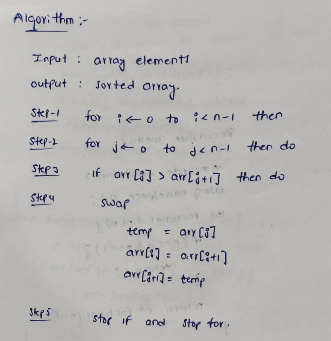 Algorithm :-
Input : array elements
output : sorted array.
Step-1 for i ← 0 to i < n-1 then
Step-2 for j ← 0 to j < n-1 then do
Step 3 if arr [j] > arr [j+1] then do
Step 4 swap
temp = arr [j]
arr[j] = arr[j+1]
arr[j+1] = temp
Step 5 stop if and stop for.